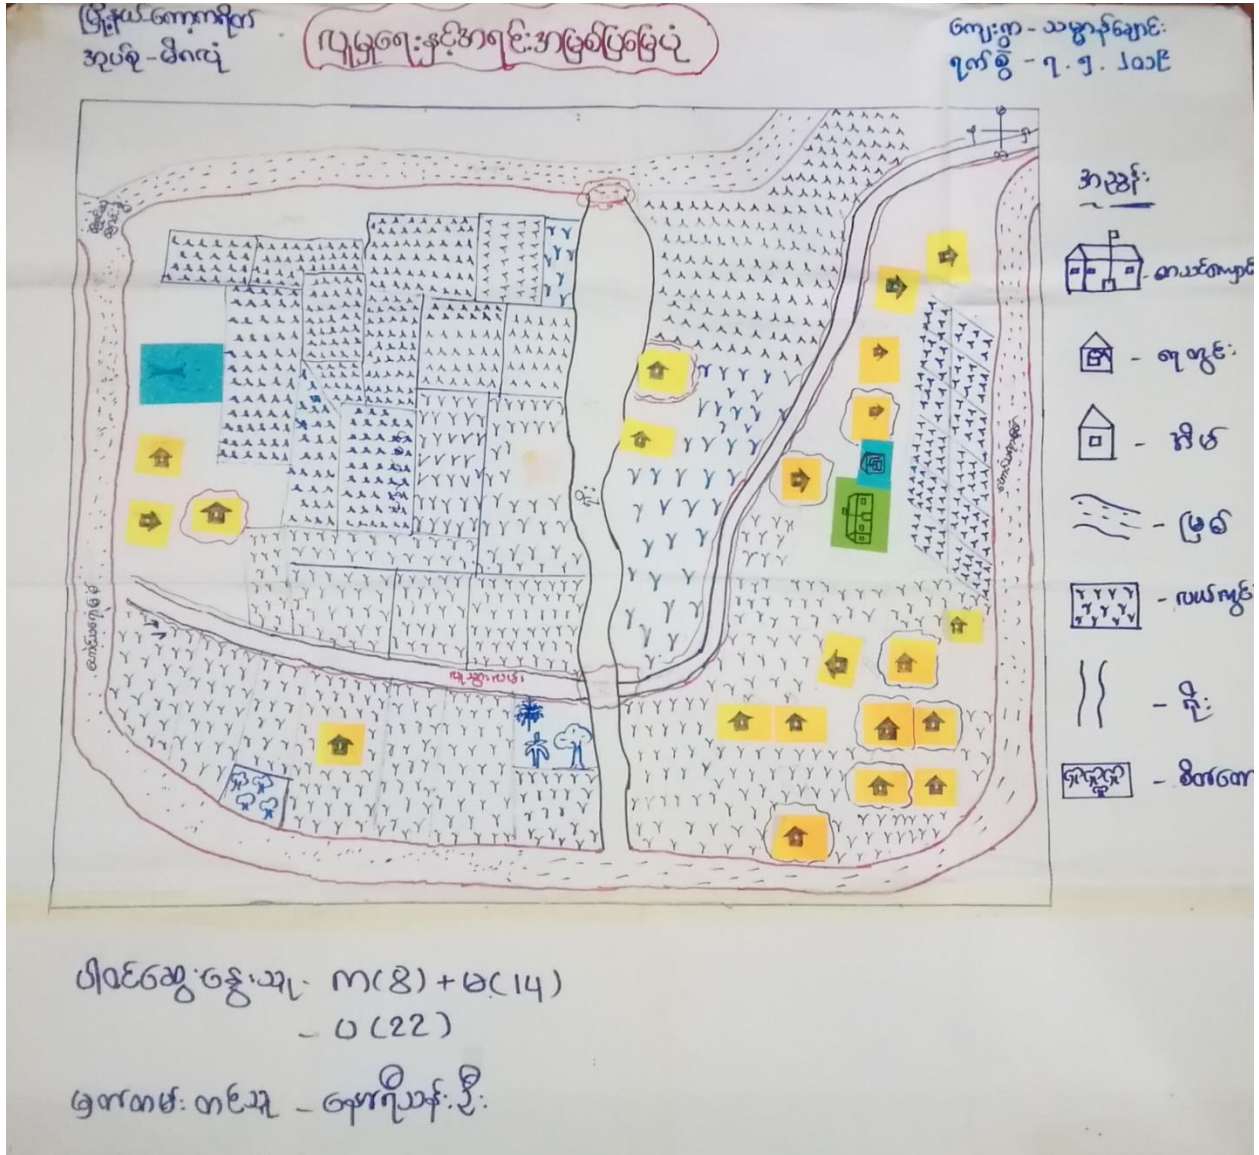 မြို့နယ်-ကော့ကရိတ်
အုပ်စု-မိဂလုံ
လူမှုရေးနှင့်အရင်းအမြစ်ပြမြေပုံ
ကျေးရွာ - သမ္ဗာန်ချောင်း
ရက်စွဲ - ၇.၅.၂၀၁၉
အညွှန်း
- စာသင်ကျောင်း
- ရေတွင်း
- အိမ်
- မြစ်
- လယ်ကွင်း
- ရိုး
- စိုက်တော
ရိုး
လူသွားလမ်း
ပါဝင်ဆွေးနွေးသူ - ကျ(8)+မ(14)
- ပ(22)
မှတ်တမ်းတင်သူ - နော်ရီသန်းဦး